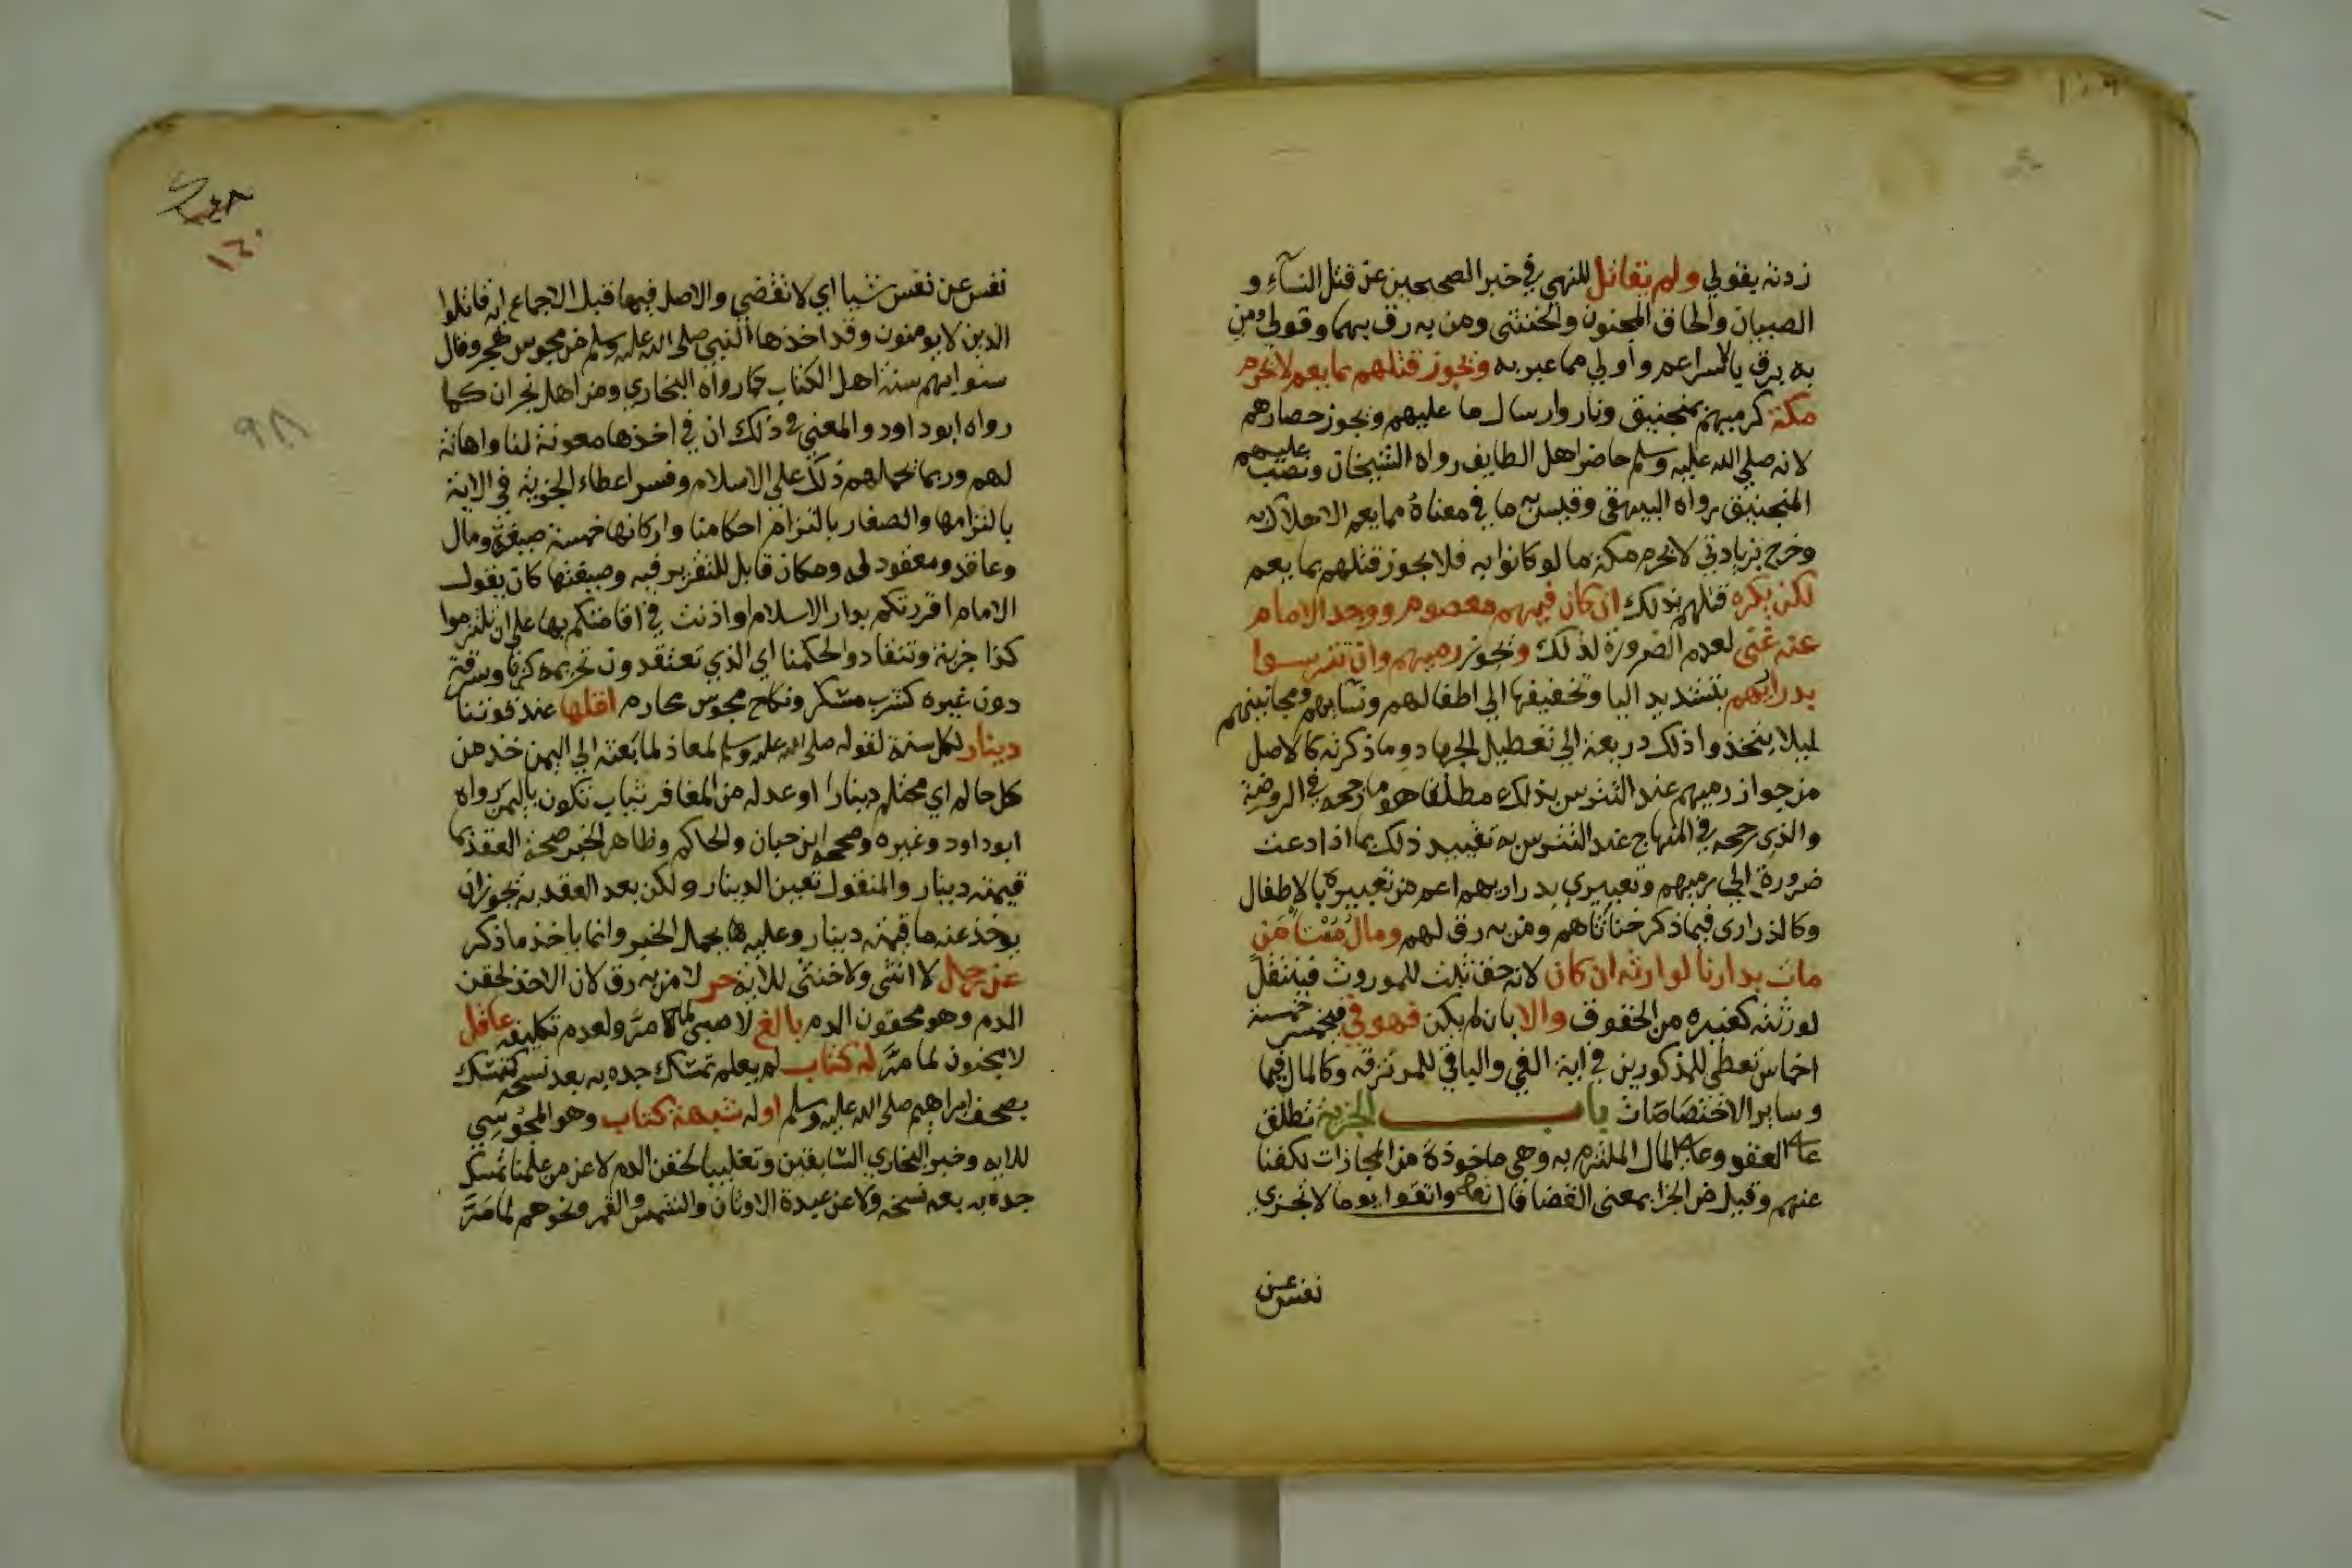 زدته بقولي ولم تقاتل للنهي في خبر الصحيحين عن قتل النسآء و
الصبيان والحاق المجنون والخنثى ومن به رق بهما وقولي ومن
به رق بالاسراعم واولي مما عبر به وتجوز قتلهم بما يعم لا بحرم
مكة كرميهم بمنجنيق ونار وارسال ما عليهم وتجوز حصارهم
لانه صلي الله عليه وسلم حاصر اهل الطايف رواه الشيخان ونصب عليهم
المنجنيق رواه البيهقي وقيس به ما في معناه مما يعم الاهلاك به
وخرج بزيادتي لا بحرم مكة ما لو كانوا به فلا يجوز قتلهم بما يعم
لكن يكره قتلهم بذلك ان كان فيهم معصوم ووجد الامام
عنه غنى لعدم الضرورة لذلك وتجوز رميهم وان تترسوا
بذراريهم بتشديد اليا وتخفيفها الي اطفالهم ونسايهم ومجانينهم
ليلا يتخذوا ذلك ذريعة الي تعطيل الجهاد وما ذكرته كالاصل
من جواز رميهم عند التترس بذلك مطلقا هو ما رجحه في الروضة
والذي رجحه في المنهاج عند التترس به تقييد ذلك بما اذا دعت
ضرورة الي رميهم وتعبيري بذراريهم اعم من تعبيره بالاطفال
وكالذراري فيما ذكر خناثاهم ومن به رق لهم ومال مستامن
مات بدارنا لوارثه ان كان لانه حق ثبت للموروث فينتقل
لورثته كغيره من الحقوق والا بان لم يكن فهو في فيخمس خمسة
اخماس تعطي للمذكورين في اية الفي والباقي للمرتزقة وكالمال فيما
وساير الاختصاصات باب الجزية تطلق
علي العقد وعلي المال الملتزم به وهي ماخوذة من المجازات لكفنا
عنهم وقيل من الجزا بمعنى القضا قال تعالي واتقوا يوما لا تجزي
نفس عن
نفس عن نفس شيا اي لا تقضي والاصل فيها قبل الاجماع اية قاتلوا
الذين لا يومنون وقد اخذها النبي صلي الله عليه وسلم من مجوس هجر وقال
سنوا بهم سنة اهل الكتاب كما رواه البخاري ومن اهل نجران كما
رواه ابو داود والمعني في ذلك ان في اخذها معونة لنا واهانة
لهم وربما يحملهم ذلك علي الاسلام وفسر اعطاء الجزية في الاية
بالتزامها والصغار بالتزام احكامنا واركانها خمسة صيغة ومال
وعاقد ومعقود له ومكان قابل للتقرير فيه وصيغتها كان يقول
الامام اقررتكم بدار الاسلام او اذنت في اقامتكم بها علي ان تلتزموا
كذا جزية وتنقادوا لحكمنا اي الذي تعتقدون تحريمه كزنا وسرقة
دون غيره كشرب مسكر ونكاح مجوس محارم اقلها عند قوتنا
دينار لكل سنة لقوله صلي الله عليه وسلم لمعاذ لما بعثه الي اليمن خذ من
كل حالم اي محتلم دينارا او عدله من المغافر ثياب تكون باليمن رواه
ابو داود وغيره وصححه ابن حبان والحاكم وظاهر الخبر صحة العقد بما
قيمته دينار والمنقول تعين الدينار ولكن بعد العقد به تجوز ان
يوخذ عنه ما قيمته دينار وعليه يحمل الخبر وانما ياخذ ما ذكر
عن رجل لا انثى ولا خنثى للاية حر لا من به رق لان الاخذ لحقن
الدم وهو محقون الدم بالغ لا صبي لما مر ولعدم تكليفه عاقل
لا مجنون لما مر له كتاب لم يعلم تمسك جده به بعد نسخه كتمسك
بصحف ابراهيم صلي الله عليه وسلم اوله شبهة كتاب وهو المجوسي
للايه وخبر البخاري السابقين وتغليبا لحقن الدم لا عن من علمنا تمسك
جده به بعد نسخه ولا عن عبدة الاوثان والشمس والقمر ونحوهم لما مر
١٣٠
٩٨